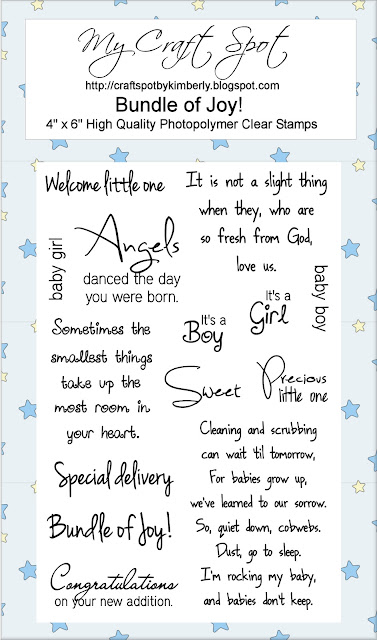 My Craft Spot
http://craftspotbykimberly.blogspot.com
Bundle of Joy!
4" x 6" High Quality Photopolymer Clear Stamps
Welcome little one
It is not a slight thing
when they, who are
so fresh from God,
love us.
baby girl
Angels
danced the day
you were born.
baby boy
It's a
Boy
It's a
Girl
Sometimes the
smallest things
take up the
most room in
your heart.
Sweet
Precious
little one
Cleaning and scrubbing
can wait 'til tomorrow,
For babies grow up,
we've learned to our sorrow.
So, quiet down, cobwebs.
Dust, go to sleep.
I'm rocking my baby,
and babies don't keep.
Special delivery
Bundle of Joy!
Congratulations
on your new addition.